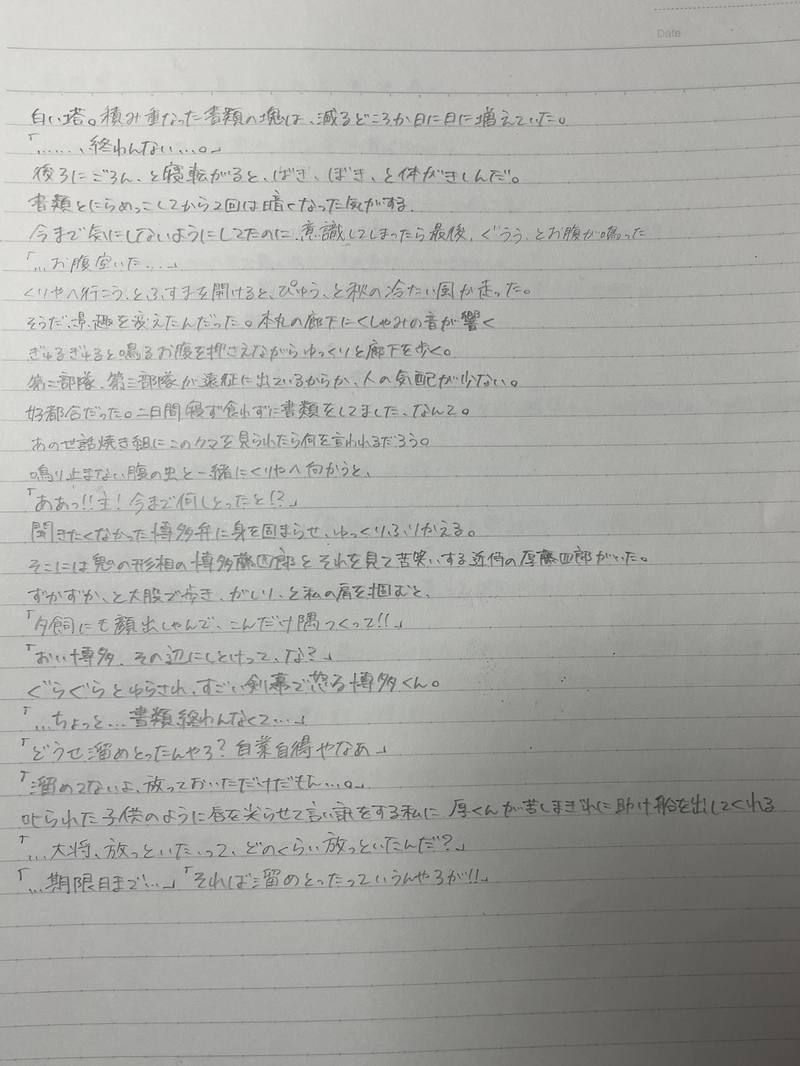 Date
白い塔。積み重なった書類の塊は、減るどころか日に日に増えていた。
「……、終わんない…。」
後ろにごろん、と寝転がると、ばき、ぼき、と体がきしんだ。
書類とにらめっこしてから2回は暗くなった気がする。
今まで気にしないようにしてたのに、意識してしまったら最後、ぐうう、とお腹が鳴った
「…お腹空いた…」
くりやへ行こう、とふすまを開けると、ぴゅう、と秋の冷たい風が走った。
そうだ、景趣を変えたんだった。本丸の廊下にくしゃみの音が響く
ぎゅるぎゅると鳴るお腹を押さえながらゆっくりと廊下を歩く。
第二部隊、第三部隊が遠征に出ているからか、人の気配が少ない。
好都合だった。二日間寝ず食わずに書類をしてました、なんて。
あのせ話焼き組にこのクマを見られたら何を言われるだろう。
鳴り止まない腹の虫と一緒にくりやへ向かうと、
「ああっ!!主!今まで何しとったと!?」
聞きたくなかった博多弁に身を固まらせ、ゆっくりふりかえる。
そこには鬼の形相の博多藤四郎とそれを見て苦笑いする近侍の厚藤四郎がいた。
ずかずか、と大股で歩き、がしり、と私の肩を掴むと、
「夕餉にも顔出しゃんで、こんだけ隅つくって!!」
「おい博多、その辺にしとけって、な?」
ぐらぐらとゆらされ、すごい剣幕で怒る博多くん。
「…ちょっと…書類終わんなくて…」
「どうせ溜めとったんやろ?自業自得やなあ」
「溜めてないよ、放っておいただけだもん…。」
叱られた子供のように唇を尖らせて言い訳をする私に 厚くんが苦しまぎれに助け船を出してくれる
「…大将、放っといた、って、どのくらい放っといたんだ?」
「…期限日まで…」「それば溜めとったっていうんやろが!!」